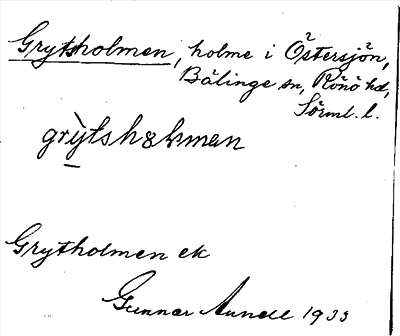 Grytsholmen, holme i Östersjön,
Bälinge sn, Rönö hd,
Sörml. l.
grỳtshɷlmen
Grytholmen ek
Gunnar Aunell 1933